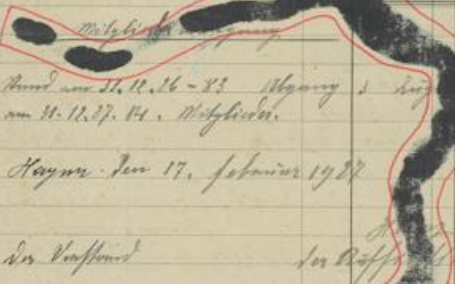 Mitgliederbewegung
Stand am 31.12.26 - 83 Abgang 3 Zug
am 31.12.27. 84. Mitglieder.
Hagen den 17. Februar 1927
Der Vorstand der